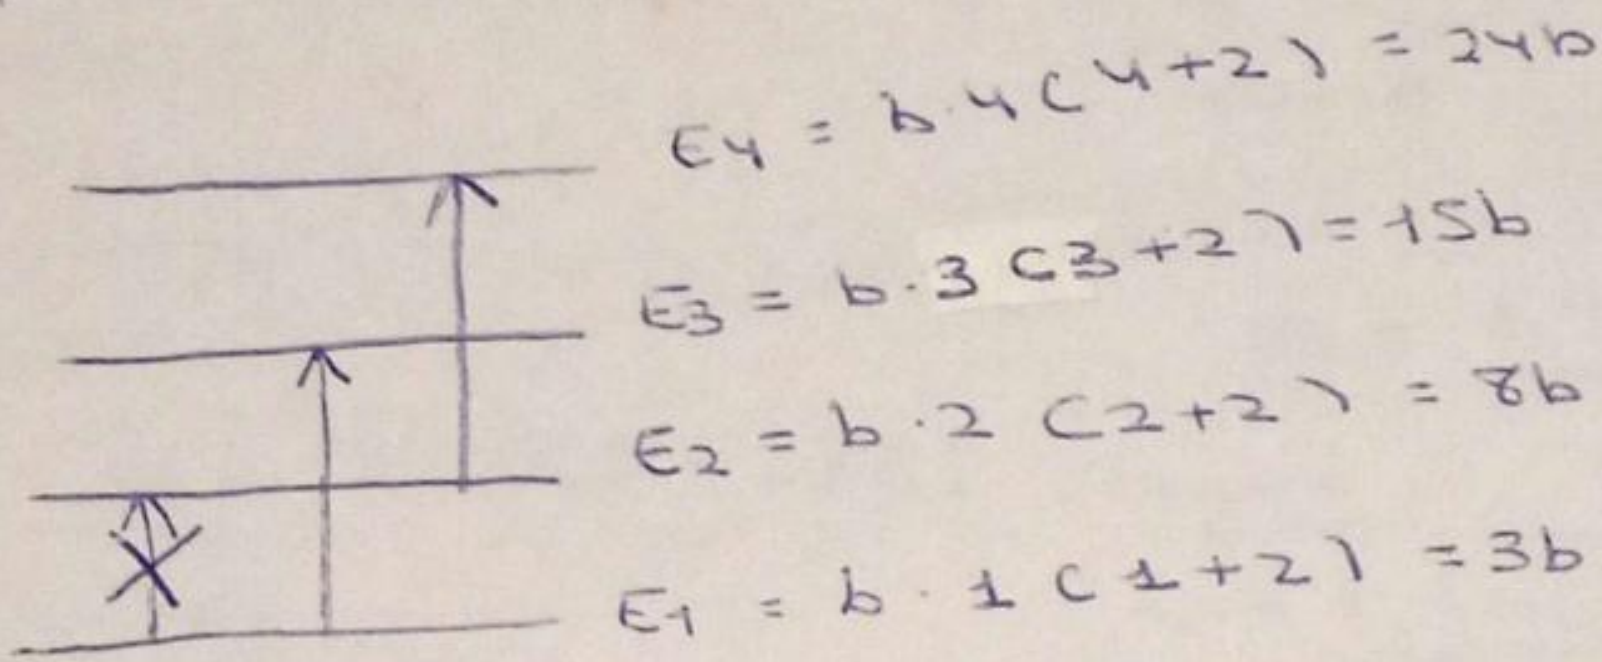 E4 = b·4(4+2) = 24b
E3 = b·3(3+2) = 15b
E2 = b·2(2+2) = 8b
E1 = b·1(1+2) = 3b